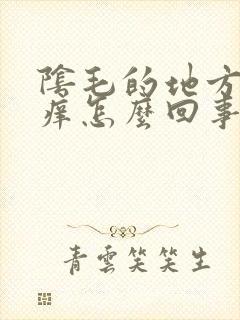 陰毛的地方
痒怎麼回事
青雲笑笑生